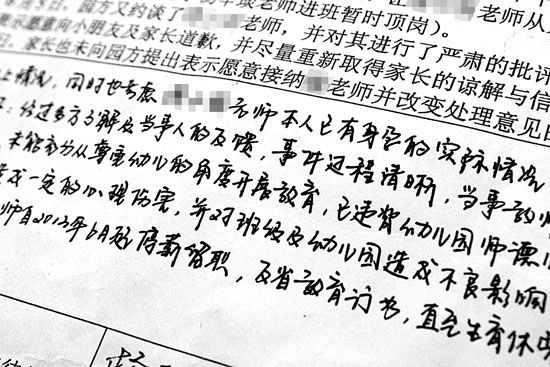 月3日,园方又约谈了 老师进班暂时顶岗)。
表示愿意向小朋友及家长道歉,并对其进行了严肃的批评
老师从
并尽量重新取得家长的谅解与信
日,家长也未向园方提出表示愿意接纳 老师并改变处理意见
上情况,同时也考虑 老师本人已有身孕的实际情况
:经过多方了解及当事人的反馈,事件过程清晰,当事教师
未能充分从尊重幼儿的角度开展教育,已违背幼儿园师德
造成一定的心理伤害,并对班级及幼儿园造成不良影响
师自2012年6月起停薪留职,反省教育行为,直至生育休